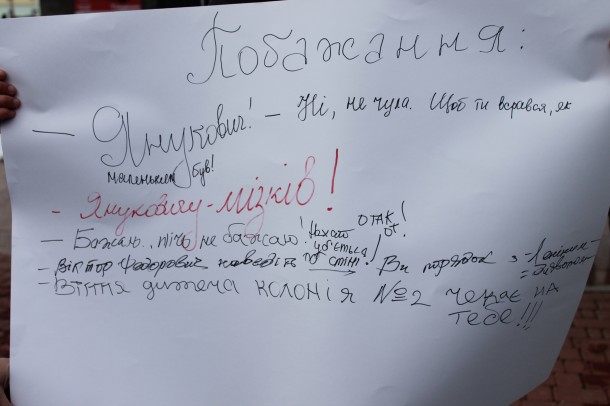 Побажання:
— Янукович! – Ні, не чула. Щоб ти всрався, як
маленьким був!
- Януковичу – мізків!
— Бажаю.. нічо не бажаю! Нахай уб'ється об стіну! ОТАК от!
- Віктор Федорович наведіть Ви порядок з
- Віння дитяча колонія №2 чекає на
тебе!!!